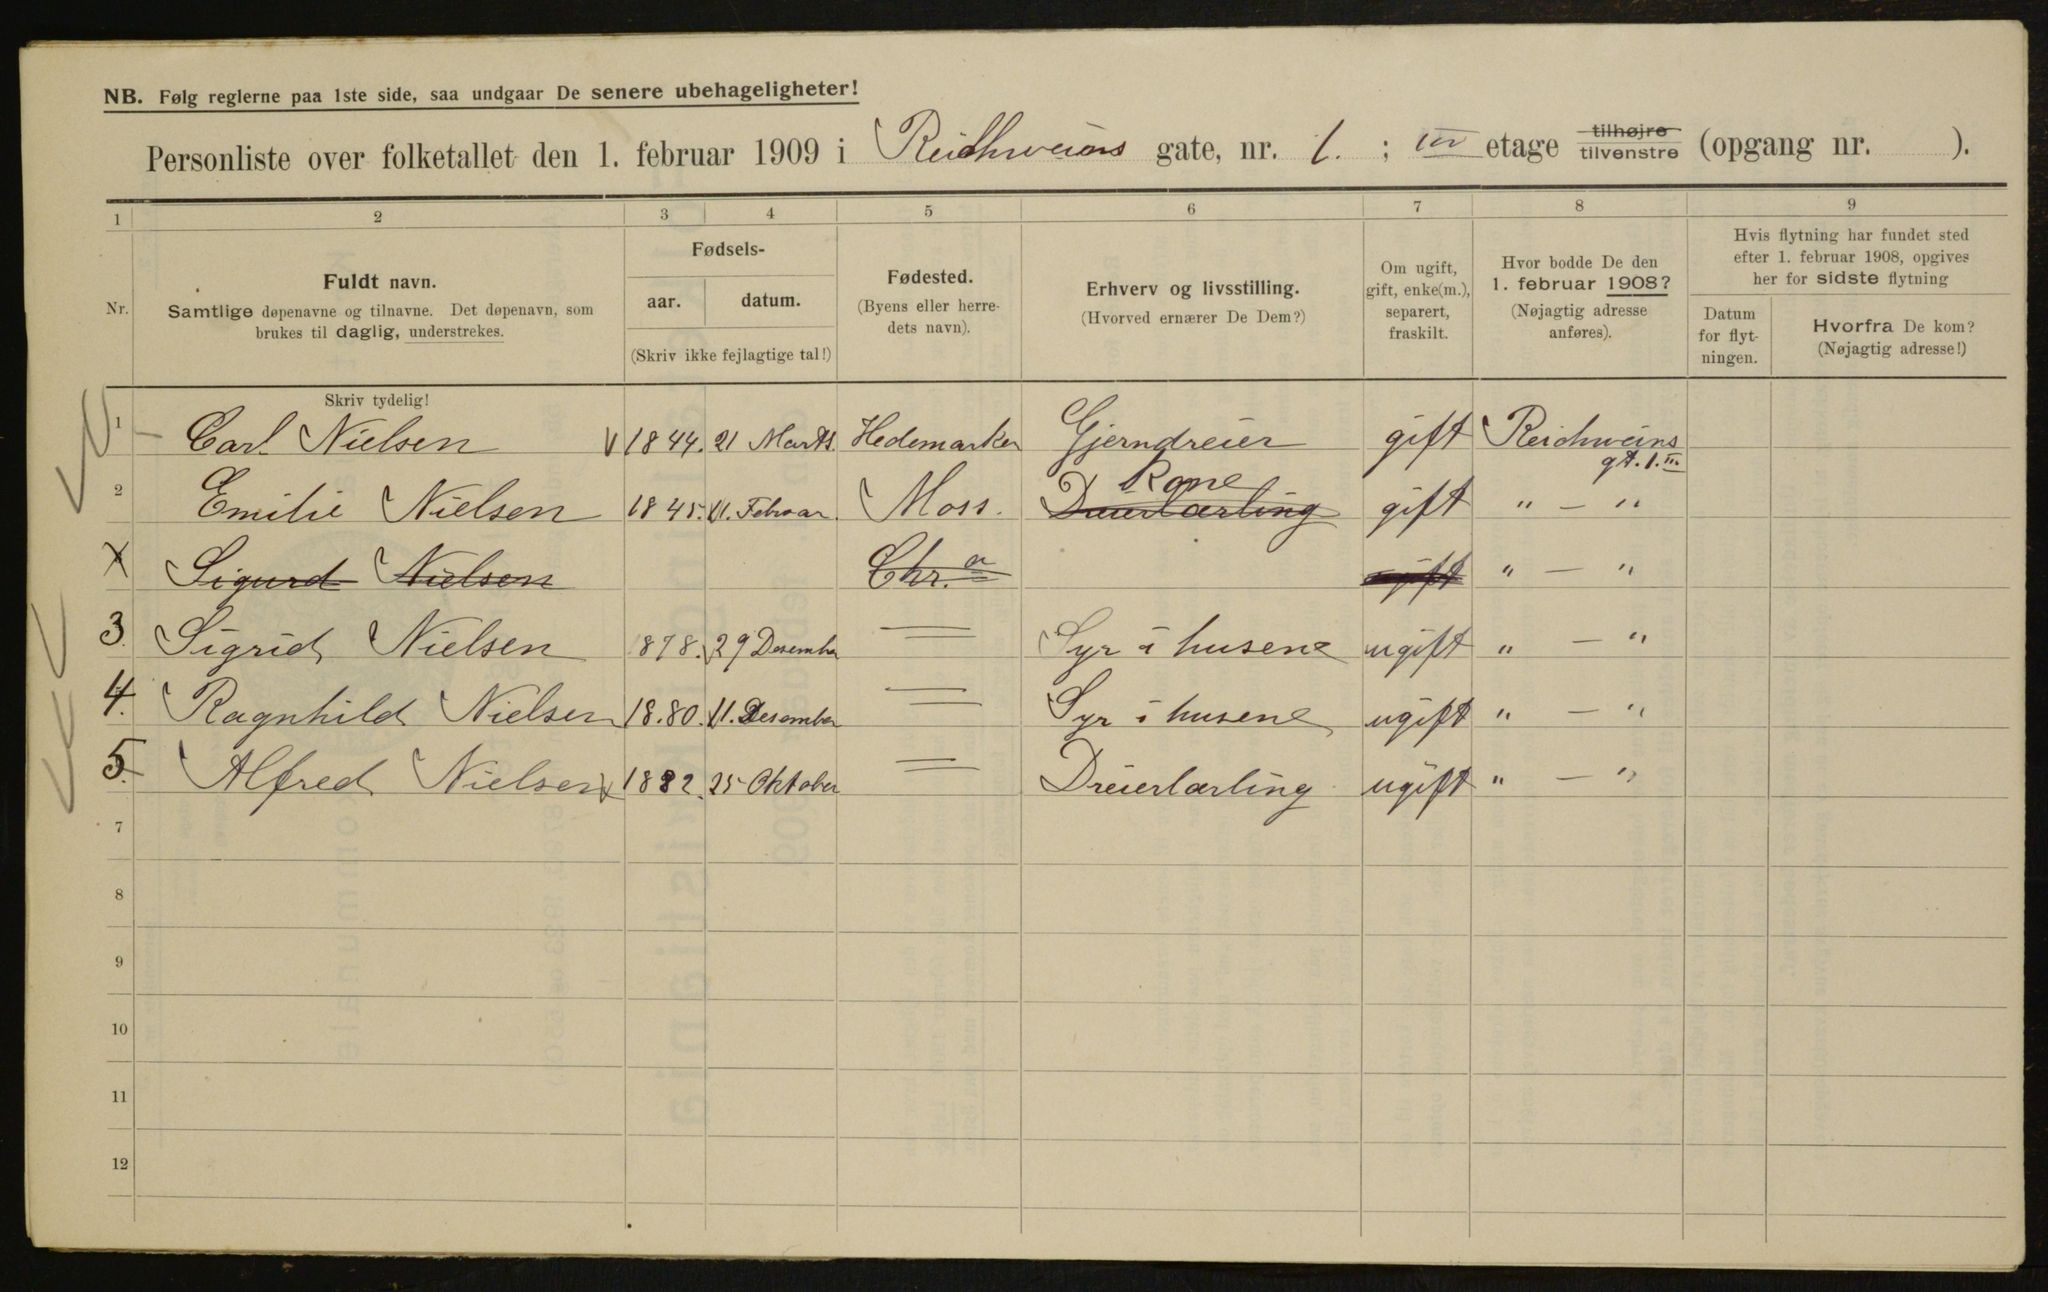 NB. Følg reglerne paa 1ste side, saa undgaar De senere ubehageligheter!
Personliste over folketallet den 1. februar 1909 i Reichweins gate, nr. 1. ; III etage tilhøjre tilvenstre (opgang nr. ).
1 2 3 4 5 6 7 8 9
Nr.
Fuldt navn.
Samtlige døpenavne og tilnavne. Det døpenavn, som
brukes til daglig, understrekes.
Skriv tydelig!
Fødsels-
aar. datum.
(Skriv ikke fejlagtige tal!)
Fødested.
(Byens eller herre-
dets navn).
Erhverv og livsstilling.
(Hvorved ernærer De Dem?)
Om ugift,
gift, enke(m.),
separert,
fraskilt.
Hvor bodde De den
1. februar 1908?
(Nøjagtig adresse
anføres).
Hvis flytning har fundet sted
efter 1. februar 1908, opgives
her for sidste flytning
Datum
for flyt-
ningen.
Hvorfra De kom?
(Nøjagtig adresse!)
1 Carl Nielsen 1844. 21 Marts. Hedemarken Gjerndreier gift Reichweins
gt. 1. III
2 Emilie Nielsen 1845. 11. Februar. Moss. Dreierlærling Kone gift " — "
Sigurd Nielsen Chr.a ugift " — "
3 Sigrid Nielsen 1878. 29 Desember = Syr i husene ugift " — "
4. Ragnhild Nielsen 1880. 11. Desember = Syr i husene ugift " — "
5. Alfred Nielsen 1882. 25 Oktober = Dreierlærling ugift " — "
7
8
9
10
11
12